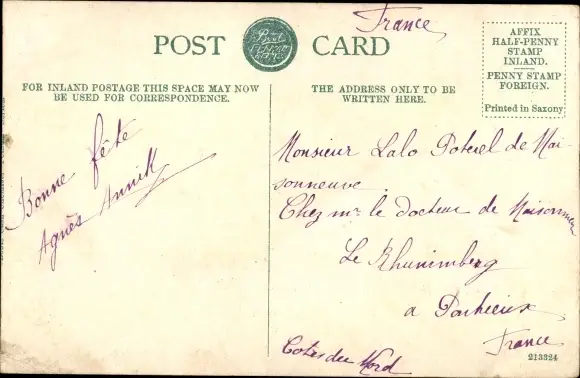 France
POST CARD
AFFIX
HALF-PENNY
STAMP
INLAND.
PENNY STAMP
FOREIGN.
Printed in Saxony
FOR INLAND POSTAGE THIS SPACE MAY NOW
BE USED FOR CORRESPONDENCE.
THE ADDRESS ONLY TO BE
WRITTEN HERE.
Bonne fête
Agnès Annik
Monsieur Lalo Poterel de Mai-
sonneuve
Chez mr le Docteur de Maisonneu
Le
a
France
Cotes du Nord
213324